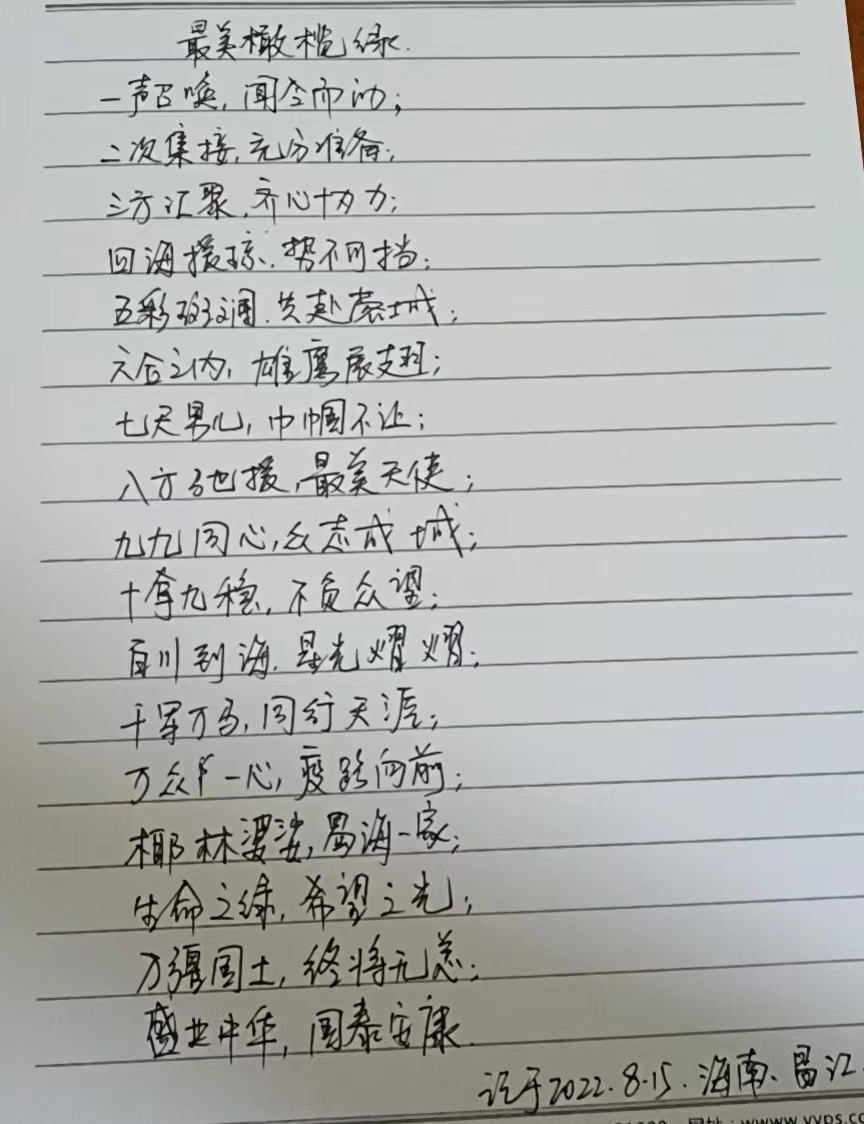 最美橄榄绿.
一声召唤,闻令而动;
二次集接,充分准备;
三方汇聚,齐心协力;
四海援琼,势不可挡;
五彩斑斓,共赴襄城;
六合之内,雄鹰展翅;
七尺男儿,巾帼不让;
八方驰援,最美天使;
九九同心,众志成城;
十拿九稳,不负众望;
百川到海,星光熠熠;
千军万马,同行天涯;
万众一心,疫路向前;
椰林婆娑,昌海一家;
生命之绿,希望之光;
万疆国土,终将无恙;
盛世中华,国泰安康.
记于2022.8.15.海南、昌江.